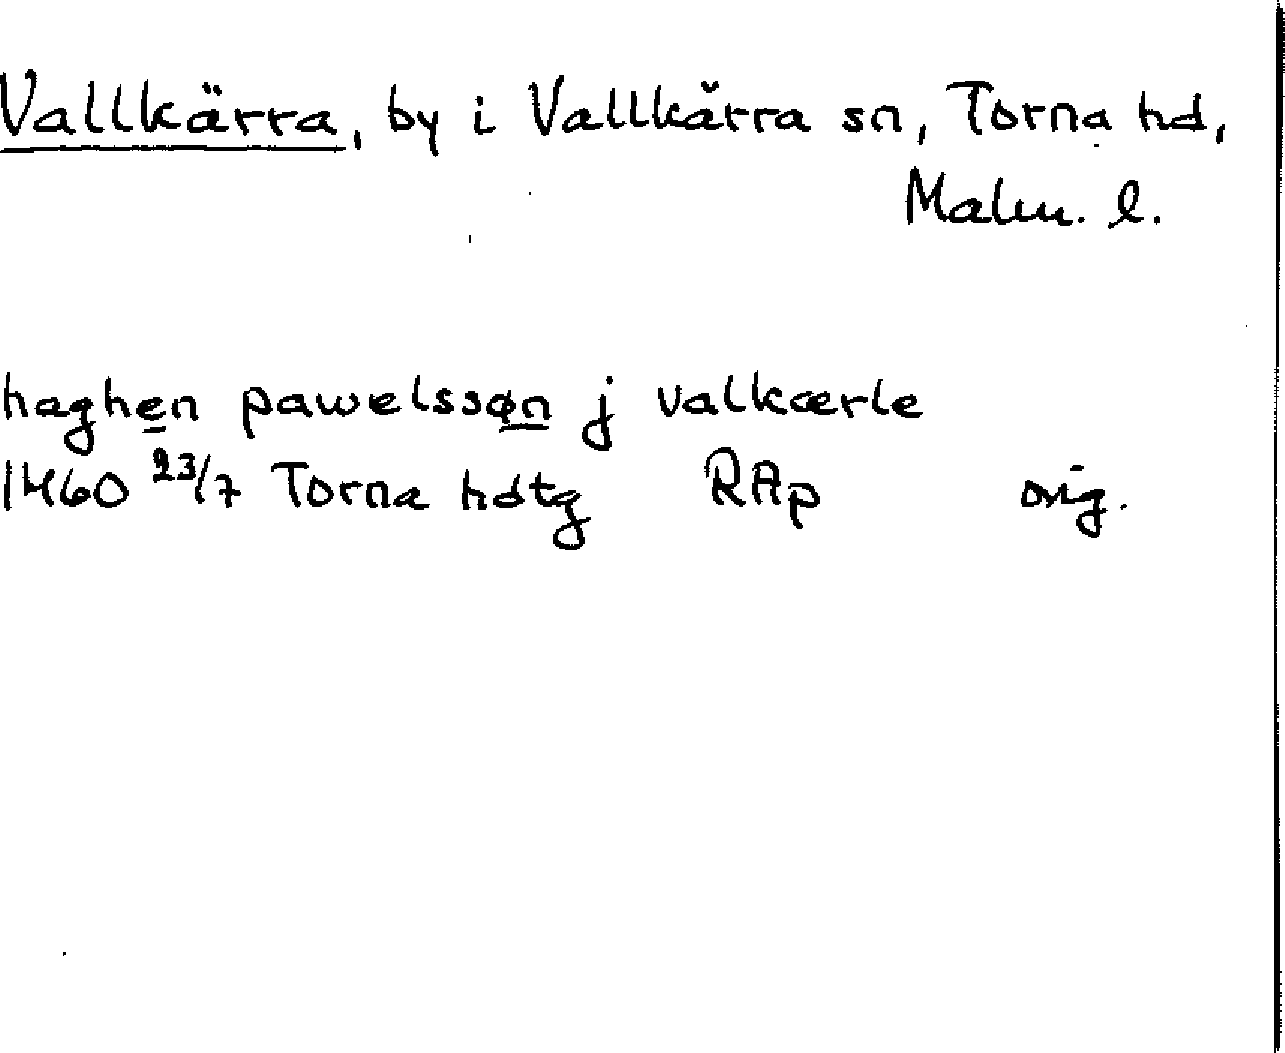 Vallkärra, by i Vallkärra sn, Torna hd,
Malm. l.
haghen pawelssøn j valkærle
1460 23/7 Torna hdtg RAp orig.